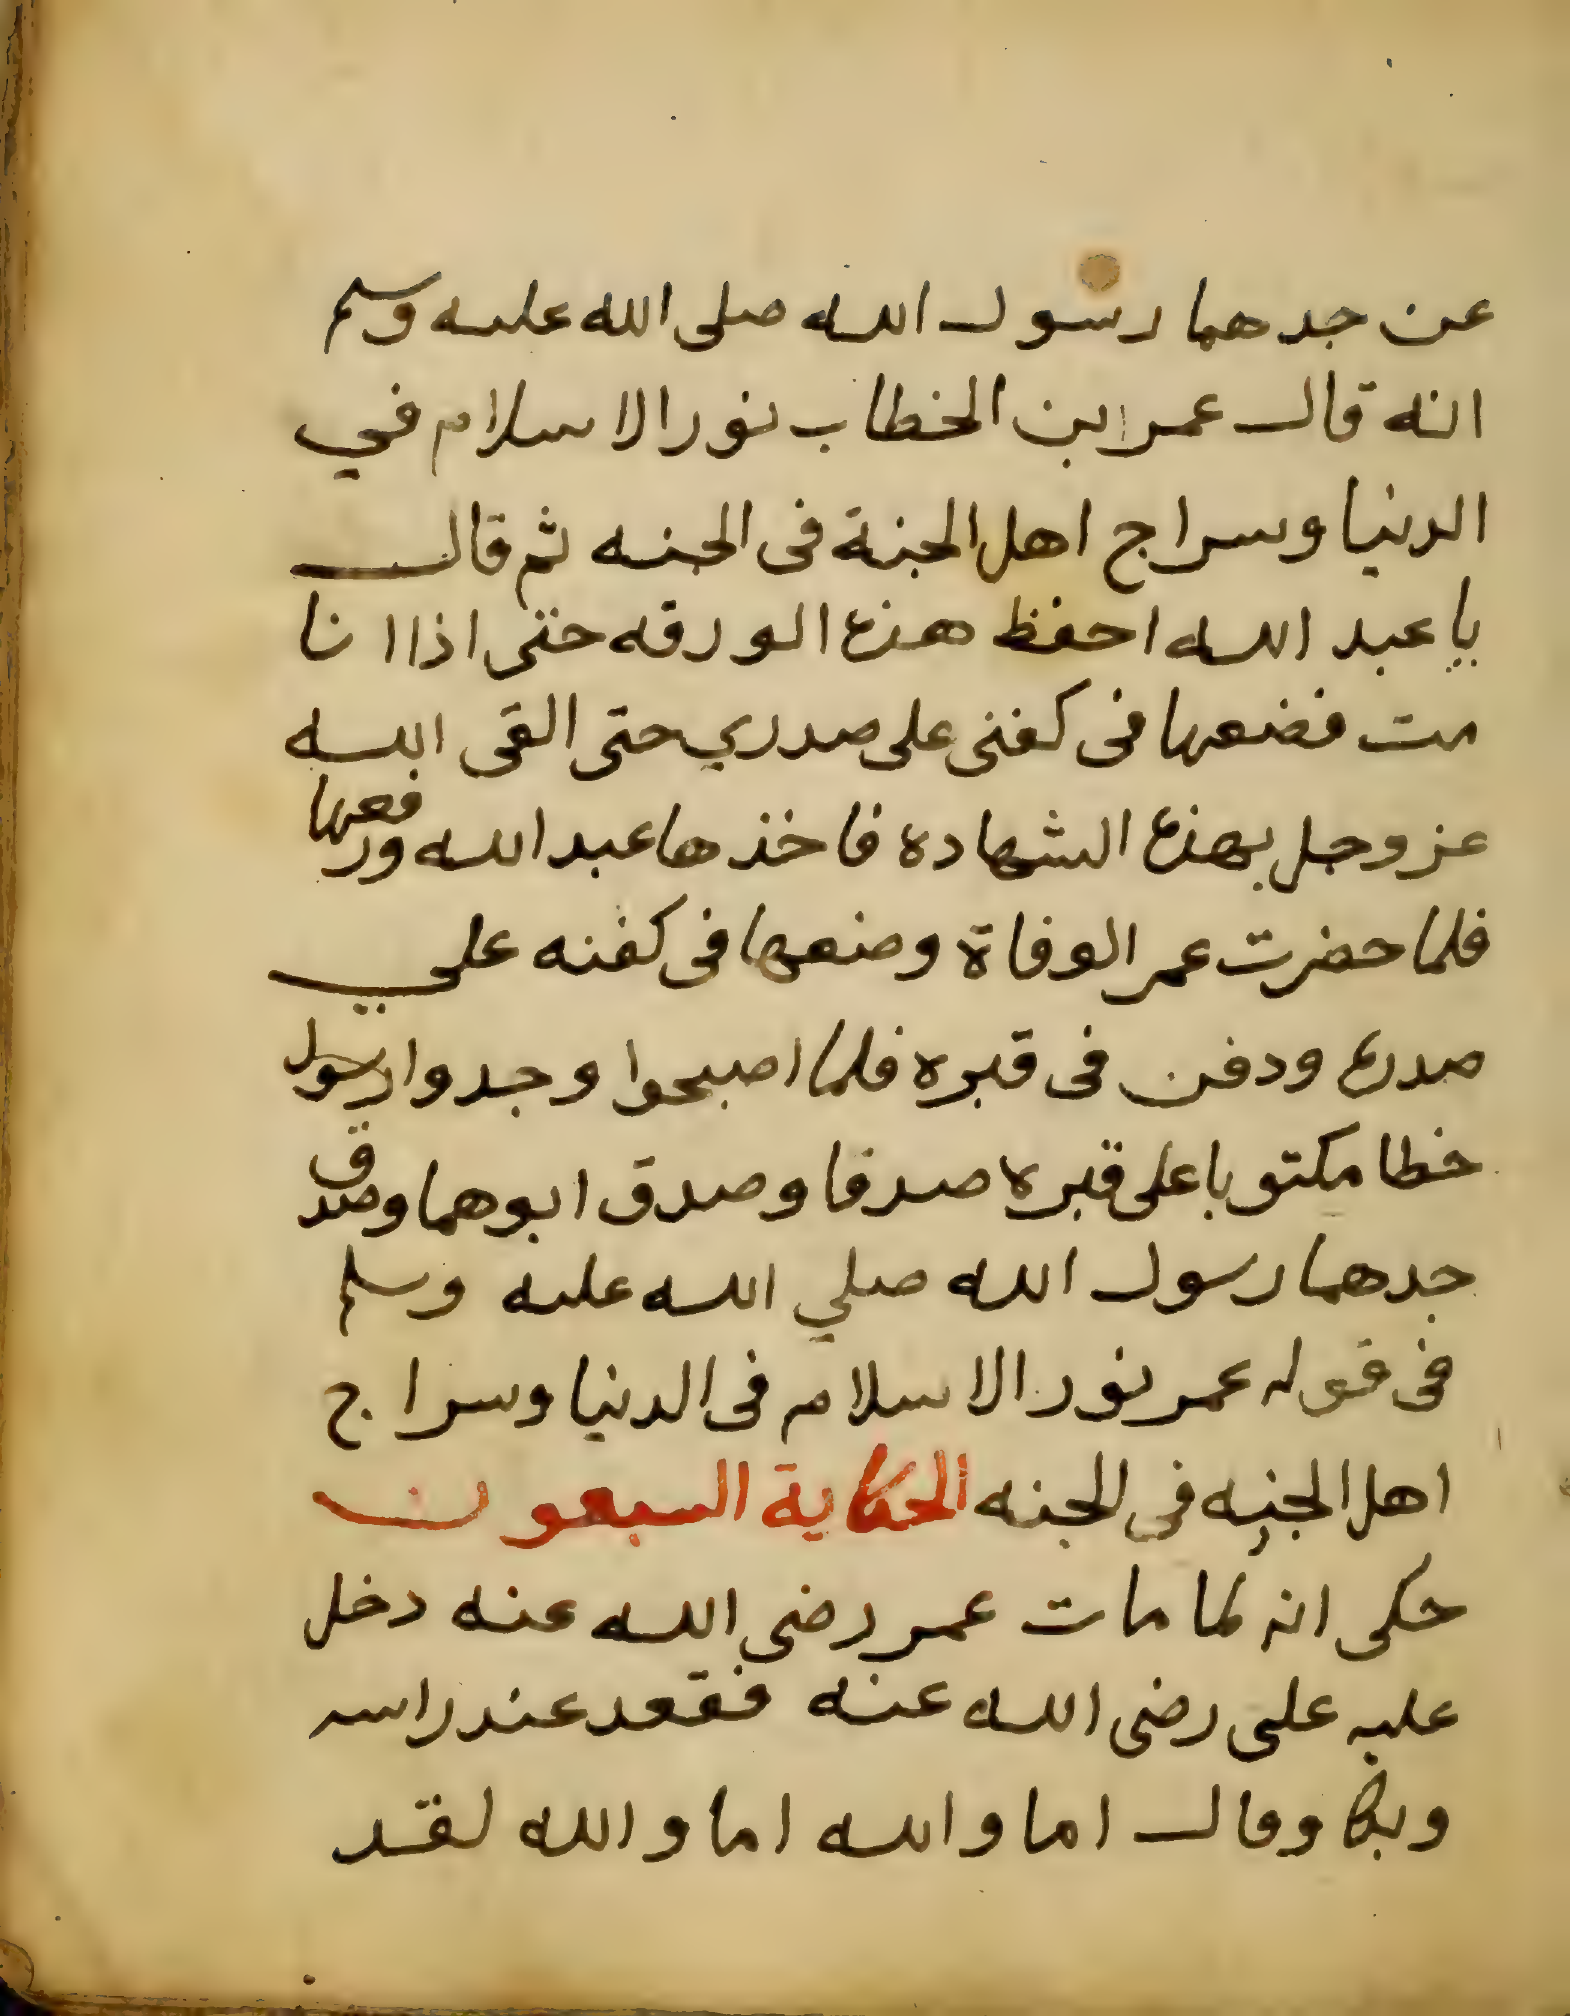 عن جدهما رسول الله صلى الله عليه وسلم
انه قال عمر ابن الخطاب نور الاسلام في
الدنيا وسراج اهل الجنة فى الجنه ثم قال
يا عبد الله احفظ هذه الورقه حتى اذا انا
مت فضعها فى كفنى على صدري حتى القى الله
عز وجل بهذه الشهاده فاخذها عبد الله ورفعها
فلما حضرت عمر الوفاة وضعها فى كفنه علي
صدره ودفن فى قبره فلما اصبحوا وجدوا رسول
خطا مكتوبا على قبره صدقا وصدق ابوهما وصدق
جدهما رسول الله صلي الله عليه وسلم
فى قوله عمر نور الاسلام فى الدنيا وسراج
اهل الجنه فى الجنه الحكاية السبعون
حكى انه لما مات عمر رضى الله عنه دخل
عليه على رضى الله عنه فقعد عند راسه
وبكا وقال اما والله اما والله لقد